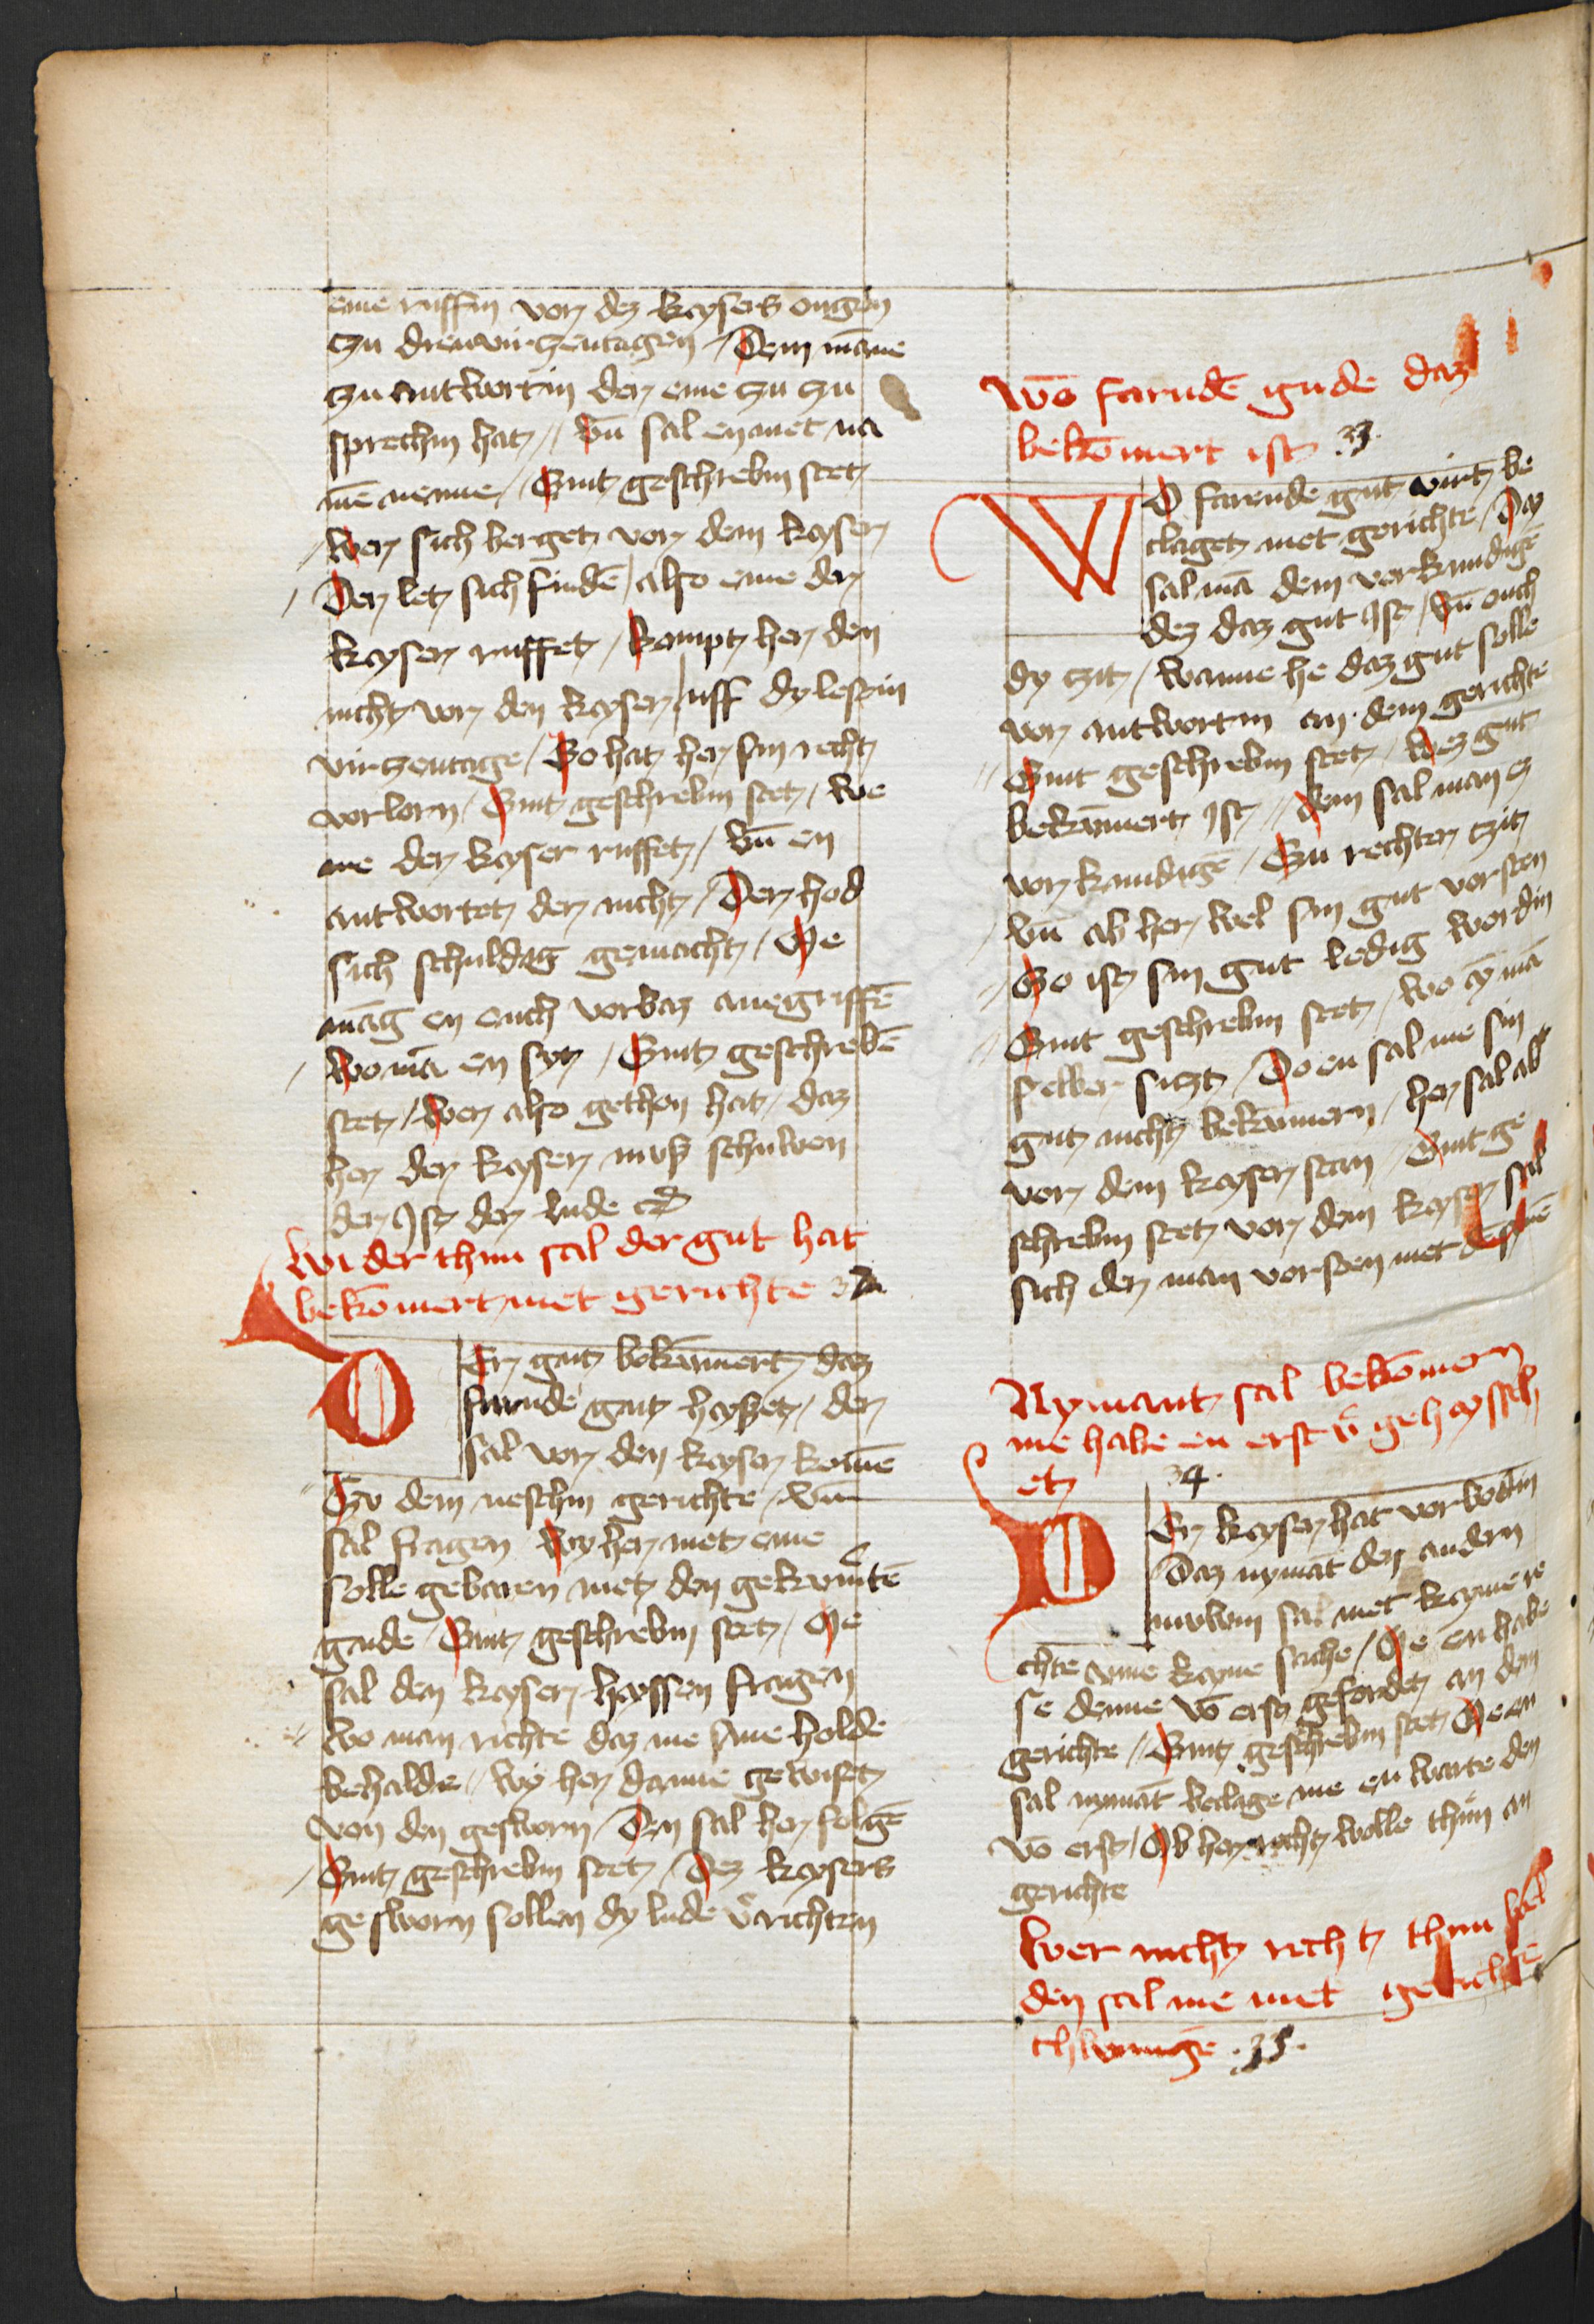 eme ruffin vor dez keysers ougen
czu dren virczentagen / Dem māne
czu antwortin der eme czu czu
sprechin hat // vn̄ sal en met na
mē nenne / Sint geschrebin stet
/ wer sich berget vor dem keyser
/ Der let sich findē / also eme der
keyser ruffet / kompt her den
nicht vor den keyser / uff dy lesczin
virczentage / So hat her sin recht
vorlorn / Sint geschrebin stet / we
me der keyser ruffet / vn̄ en
antwortet der nicht / Der hod
sich schuldig gemacht / Me
mag en ouch vorbaz anegriffē
/ wo mā en syt / Sint geschrebē
stet / wer also gethon hat / daz
her den keyser muß schuwen
der ist der lude
Wi der thun sal der gut hat
bekōmert met gerichte 32
DEr gut bekūmert daz
farnde gut heyßet / der
sal vor den keyser komē
Czu dem neschin gerichte / vn̄
sal fragen wy her met eme
solle gebaren met den gekūm̄tē
gude / Sint geschrebin stet / Me
sal den keyser heyssen fragen
// wo man richte daz me sine holde
behalde / wy her danne gewiset
von den gesworn / Den sal her folgē
/ Sint geschrebin stet / Dez keysers
gesworn sollen dy lude v̄richten
Vō farndē gude daz
bekōmert ist 33.
WO farende gut wirt be
claget met gerichte / Daz
sal mā dem vorkundigē
dez daz gut ist / vn̄ ouch
dy czit / wanne he daz gut solle
vor antwortin an dem gerichte
// Sint geschrebin stet / wez gut
bekūmert ist // dem sal man ez
vor kundigē / Czu rechter czit
/ vn̄ ab her wel sin gut vorsten
/ So ist sin gut ledig wordin
// Sint geschrebin stet / wo eȳ mā
selber siczt / Do en sal me sin
gut nicht bekūmern / her sal ab
vor dem keyser stan / Sint ge
schrebin stet vor dem keyser sal
sich der man vorsten met
Nymant sal bekōmern
me habe en erst v̄ geheyssch
et 34.
DEr keyser hat vorbodin
Daz nymāt den andern
muwin sal met keyme re
chte vme keyne sache / Me en habe
se denne vō erst gefordet an dem
gerichte // Sint geschrebin stet Me en
sal nymāt beclage me en warte den
vō erst / Ab her recht wolle thun an
gerichte
Wer nicht recht thun wel
den sal me met gerichte
thwingē .35.